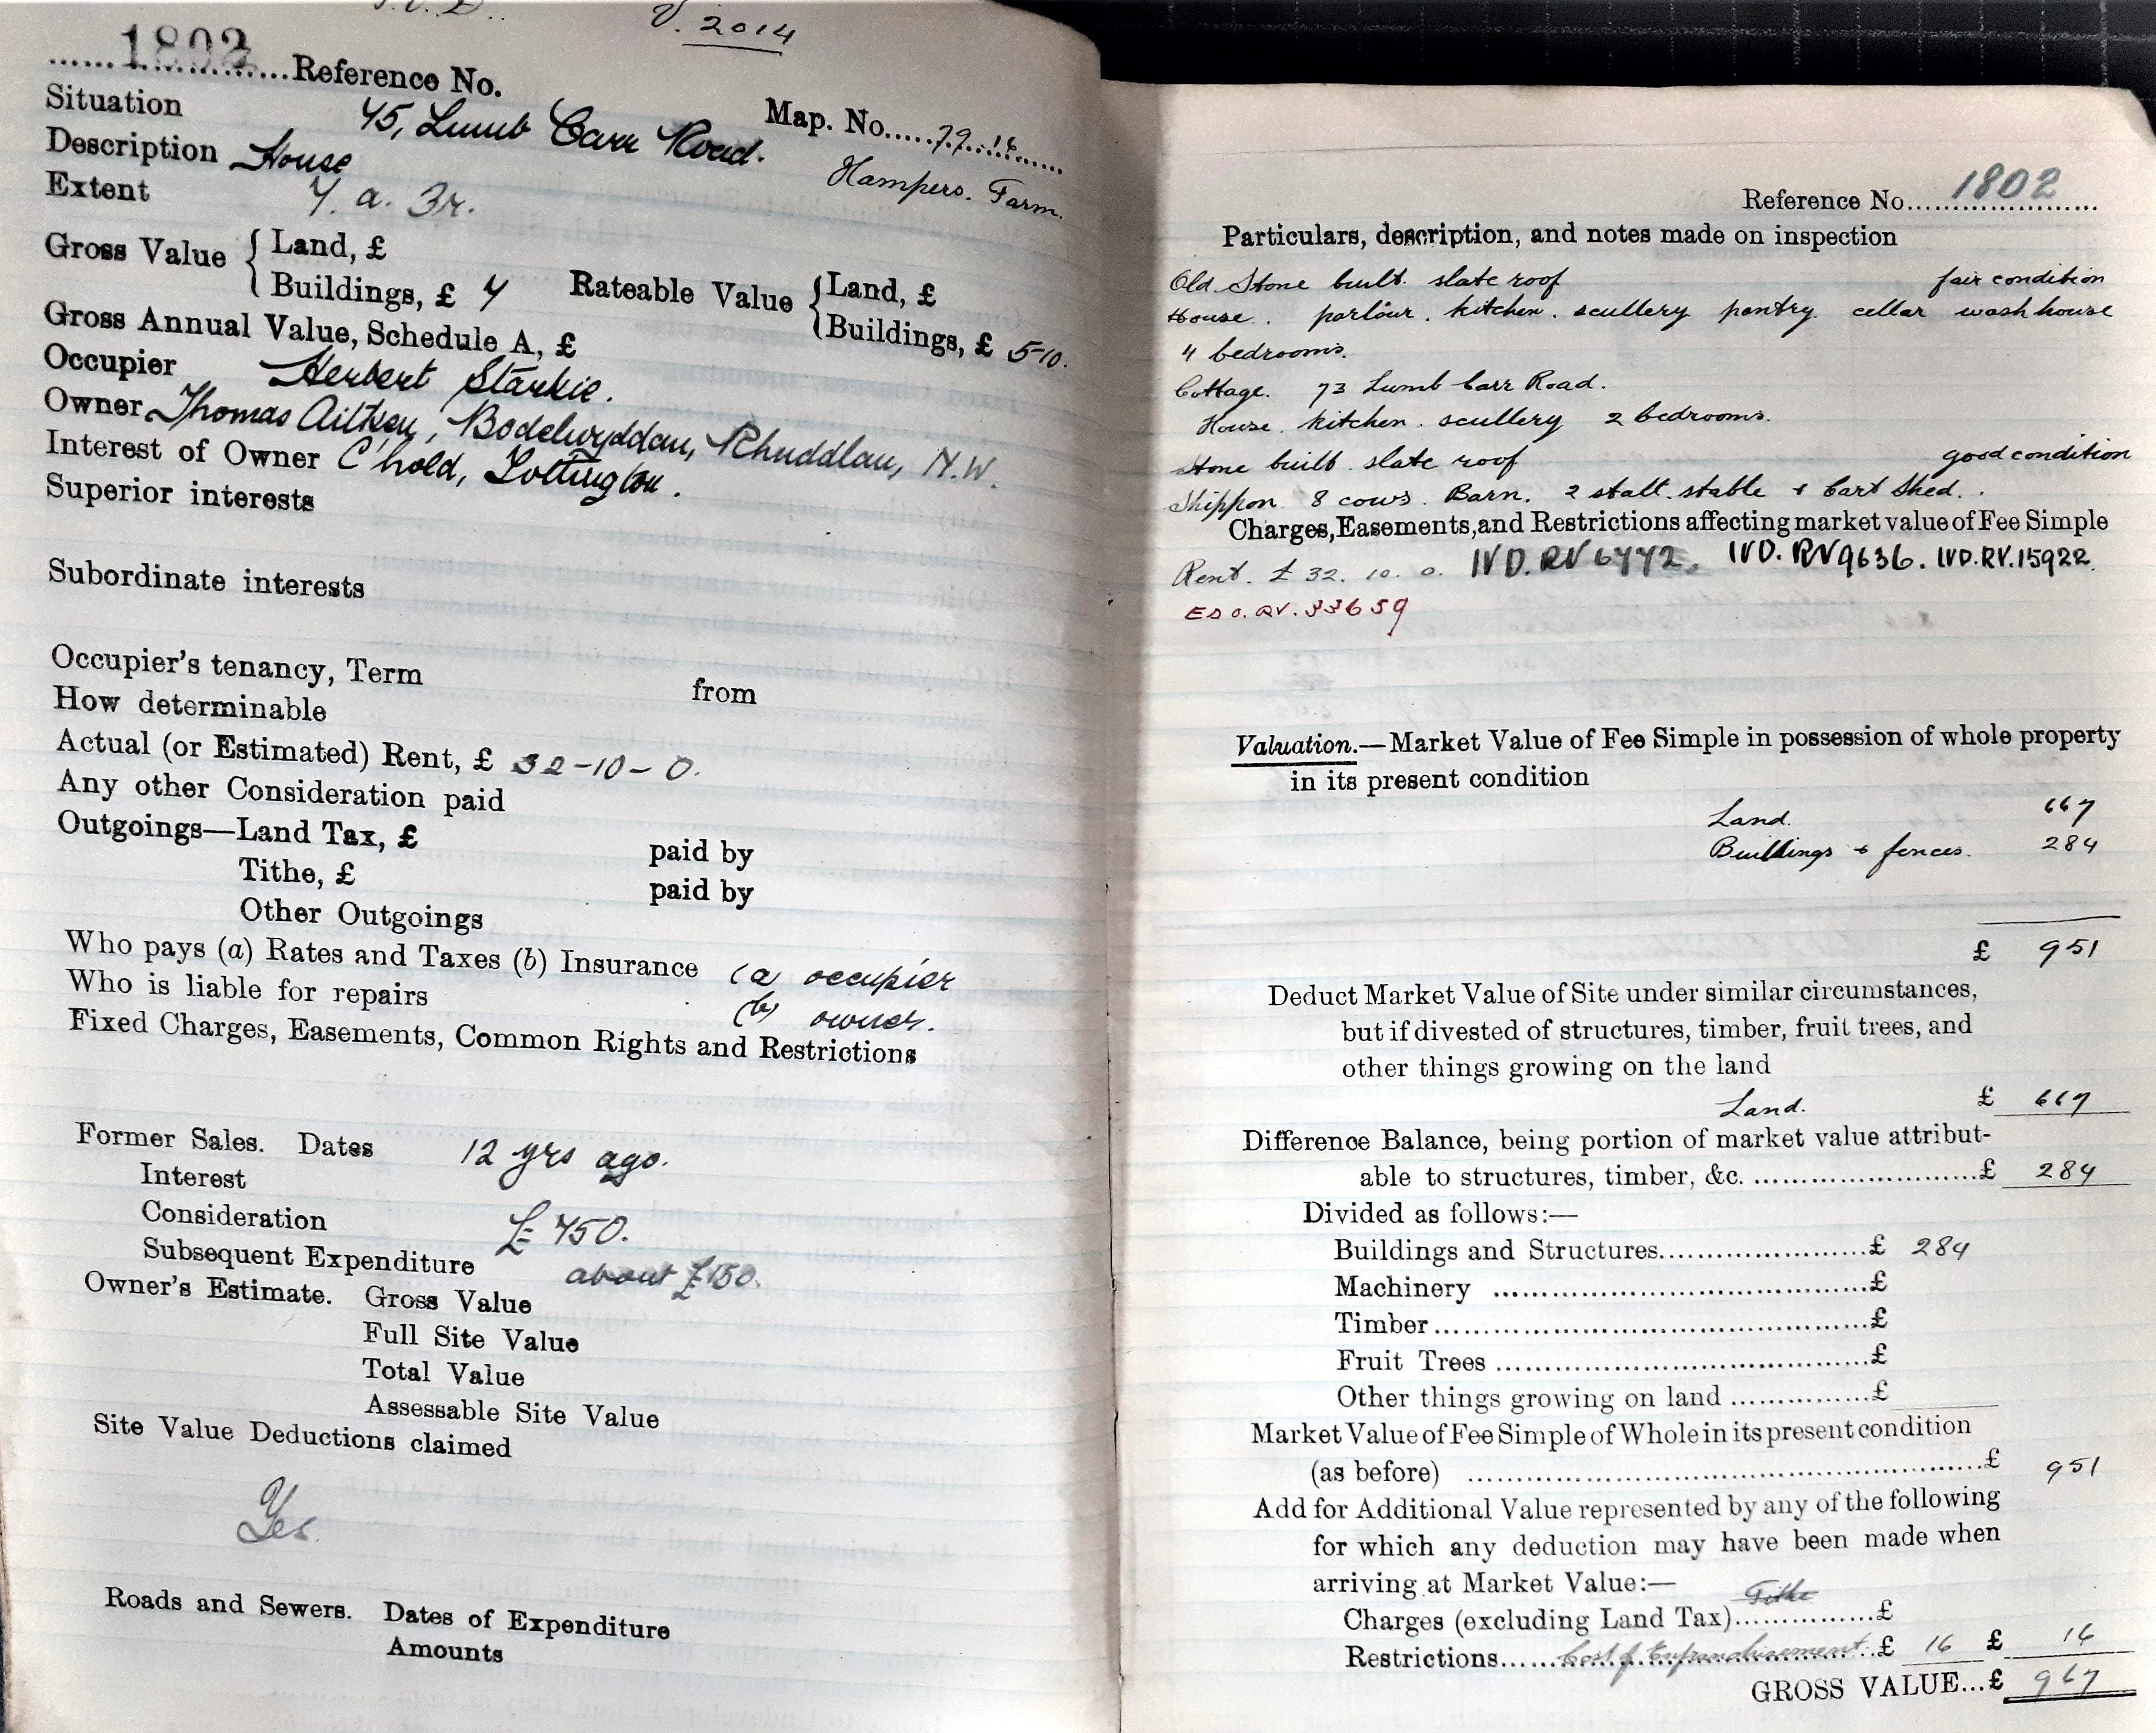 V. 2014
1802 Reference No.
Map. No. 79.16
Situation 75, Lumb Carr Road.
Hampers. Farm.
Description House
Extent 7. a. 3r.
Gross Value { Land, £
Buildings, £ 7 Rateable Value { Land, £
Buildings, £ 5-10.
Gross Annual Value, Schedule A, £
Occupier Herbert Starkie.
Owner Thomas Aitken, Bodelwyddan, Rhuddlan, N.W.
Interest of Owner C'hold, Tottington.
Superior interests
Subordinate interests
Occupier's tenancy, Term from
How determinable
Actual (or Estimated) Rent, £ 32-10-0.
Any other Consideration paid
Outgoings—Land Tax, £ paid by
Tithe, £ paid by
Other Outgoings
Who pays (a) Rates and Taxes (b) Insurance (a) occupier
Who is liable for repairs (b) owner.
Fixed Charges, Easements, Common Rights and Restrictions
Former Sales. Dates 12 yrs ago.
Interest
Consideration £750.
Subsequent Expenditure about £150.
Owner's Estimate. Gross Value
Full Site Value
Total Value
Assessable Site Value
Site Value Deductions claimed
Yes.
Roads and Sewers. Dates of Expenditure
Amounts
Reference No. 1802
Particulars, description, and notes made on inspection
Old Stone built. slate roof fair condition
House. parlour. kitchen. scullery pantry. cellar wash house
4 bedrooms.
Cottage. 73 Lumb Carr Road.
House. kitchen. scullery 2 bedrooms.
Stone built. slate roof good condition
Shippon 8 cows. Barn. 2 stall. stable & Cart Shed.
Charges, Easements, and Restrictions affecting market value of Fee Simple
Rent. £ 32. 10. 0. IVD. RV 6772. IVD. RV9636. IVD.RV.15922.
EDO. RV. 33659
Valuation.—Market Value of Fee Simple in possession of whole property
in its present condition
Land. 667
Buildings & fences. 284
£ 951
Deduct Market Value of Site under similar circumstances,
but if divested of structures, timber, fruit trees, and
other things growing on the land
Land. £ 667
Difference Balance, being portion of market value attribut-
able to structures, timber, &c. £ 284
Divided as follows:—
Buildings and Structures £ 284
Machinery £
Timber £
Fruit Trees £
Other things growing on land £
Market Value of Fee Simple of Whole in its present condition
(as before) £ 951
Add for Additional Value represented by any of the following
for which any deduction may have been made when
arriving at Market Value:—
Tithe
Charges (excluding Land Tax) £
Restrictions Cost of Enfranchisement. £ 16 £ 16
GROSS VALUE...£ 967